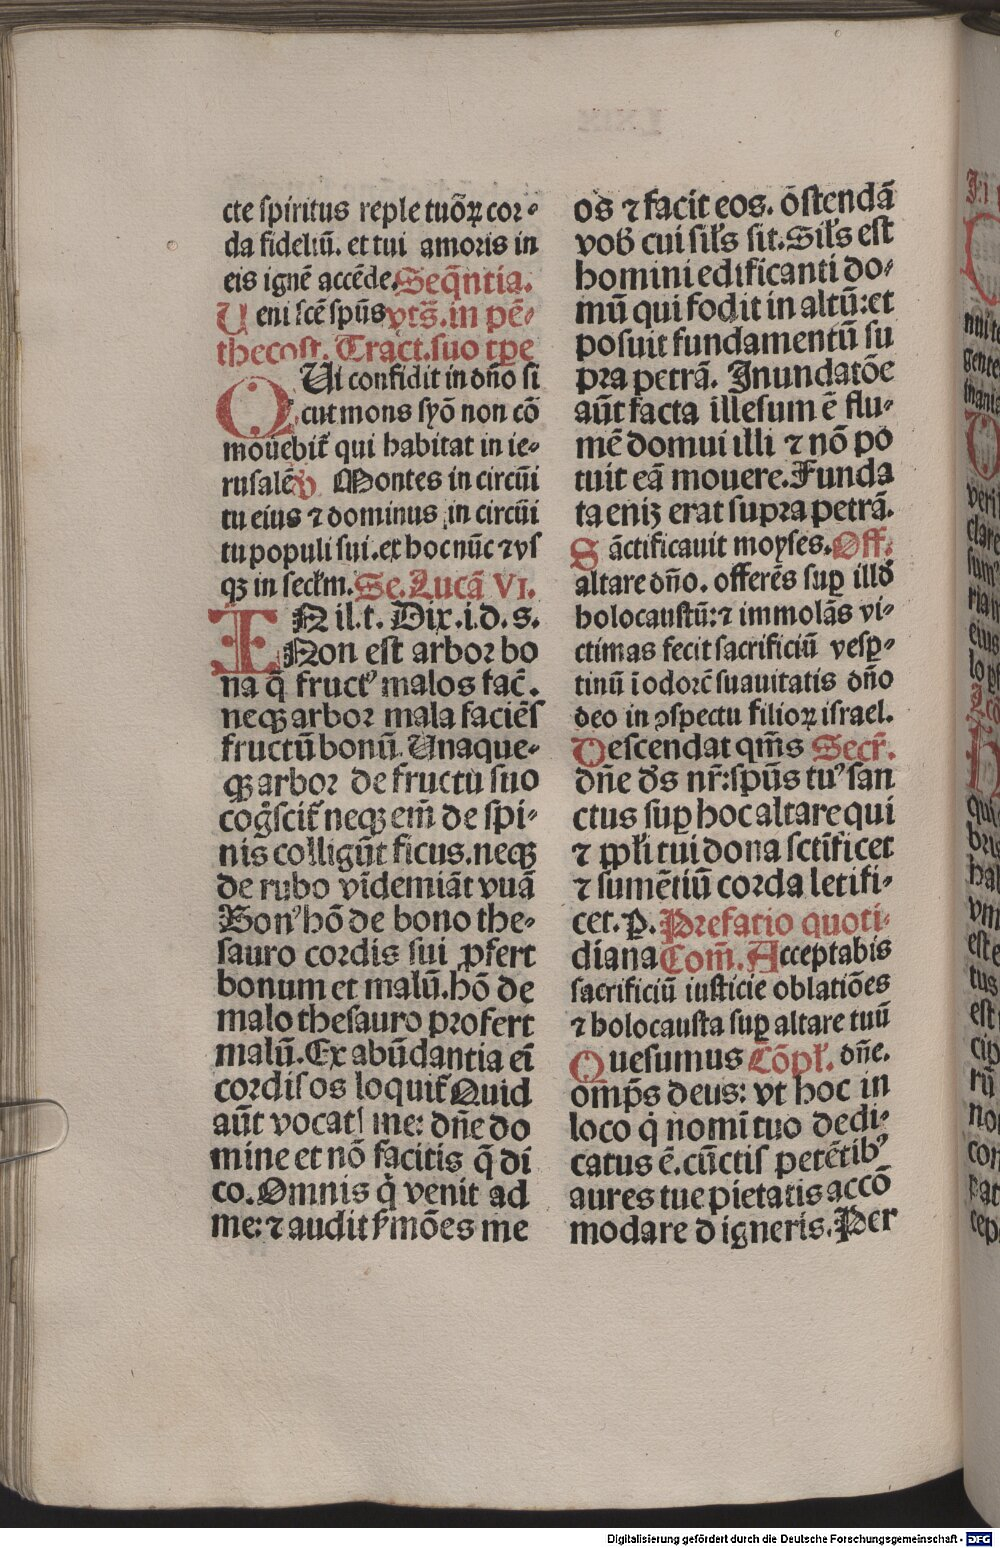 cte spiritus reple tuōꝝ cor⸗
da fideliū. et tui amoris in
eis ignē accēde. Seq̄ntia.
Ueni scē spūs vts̄. in pē⸗
thecost. Tract. suo tp̄e
QUi confidit in dn̄o si
cut mons syō non cō
mouebit᷑ qui habitat in ie⸗
rusalē ꝟ Montes in circūi
tu eius ⁊ dominus in circūi
tu populi sui. ex hoc nūc ⁊ vs
qꝫ in secl̄m. Se. Lucā VI.
IN il. t. Dix. i. d. s.
Non est arbor bo
na q̄ fructꝰ malos fac̄.
neqꝫ arbor mala faciēs
fructū bonū. Unaque⸗
qꝫ arbor de fructu suo
coḡscit᷑ neqꝫ em̄ de spi⸗
nis colligūt ficus. neqꝫ
de rubo vīdemiāt vuā
Bonꝰ hō de bono the⸗
sauro cordis sui ꝓfert
bonum et malū. hō de
malo thesauro profert
malū. Ex abūdantia ei̅
cordis os loquit᷑ Quid
aūt vocat᷑ me: dn̄e do
mine et nō facitis q̄ di
co. Omnis q̇ venit ad
me: ⁊ audit s̄mōes me
os ⁊ facit eos. ōstendā
vob̄ cui sil̄s sit. Sil̄s est
homini edificanti do⸗
mū qui fodit in altū: et
posuit fundamentū su
pra petrā. Inundatōe
aūt facta illesum ē flu⸗
mē domui illi ⁊ nō po
tuit eā mouere. Funda
ta eniꝫ erat supra petrā.
Sāctificauit moyses. Off.
altare dn̄o. offerēs suꝑ illd̄
holocaustū: ⁊ immolās vi⸗
ctimas fecit sacrificiū vesꝑ⸗
tinū ī odorē suauitatis dn̄o
deo in ꝯspectu filioꝝ israel.
Descendat qm̄s Secr̄.
dn̄e ds̄ nr̄: spūs tuꝰ san
ctus suꝑ hoc altare qui
⁊ ppl̄i tui dona sctīficet
⁊ sumētiū corda letifi⸗
cet. p. Prefatio quoti⸗
diana Com̄. Acceptabis
sacrificiū iusticie oblatiōes
⁊ holocausta suꝑ altare tuū
Quesumus Cōpl̄. dn̄e.
omp̄s deus: vt hoc in
loco q̇ nomī tuo dedi⸗
catus ē. cūctis petētibꝰ
aures tue pietatis accō
modare digneris. Per